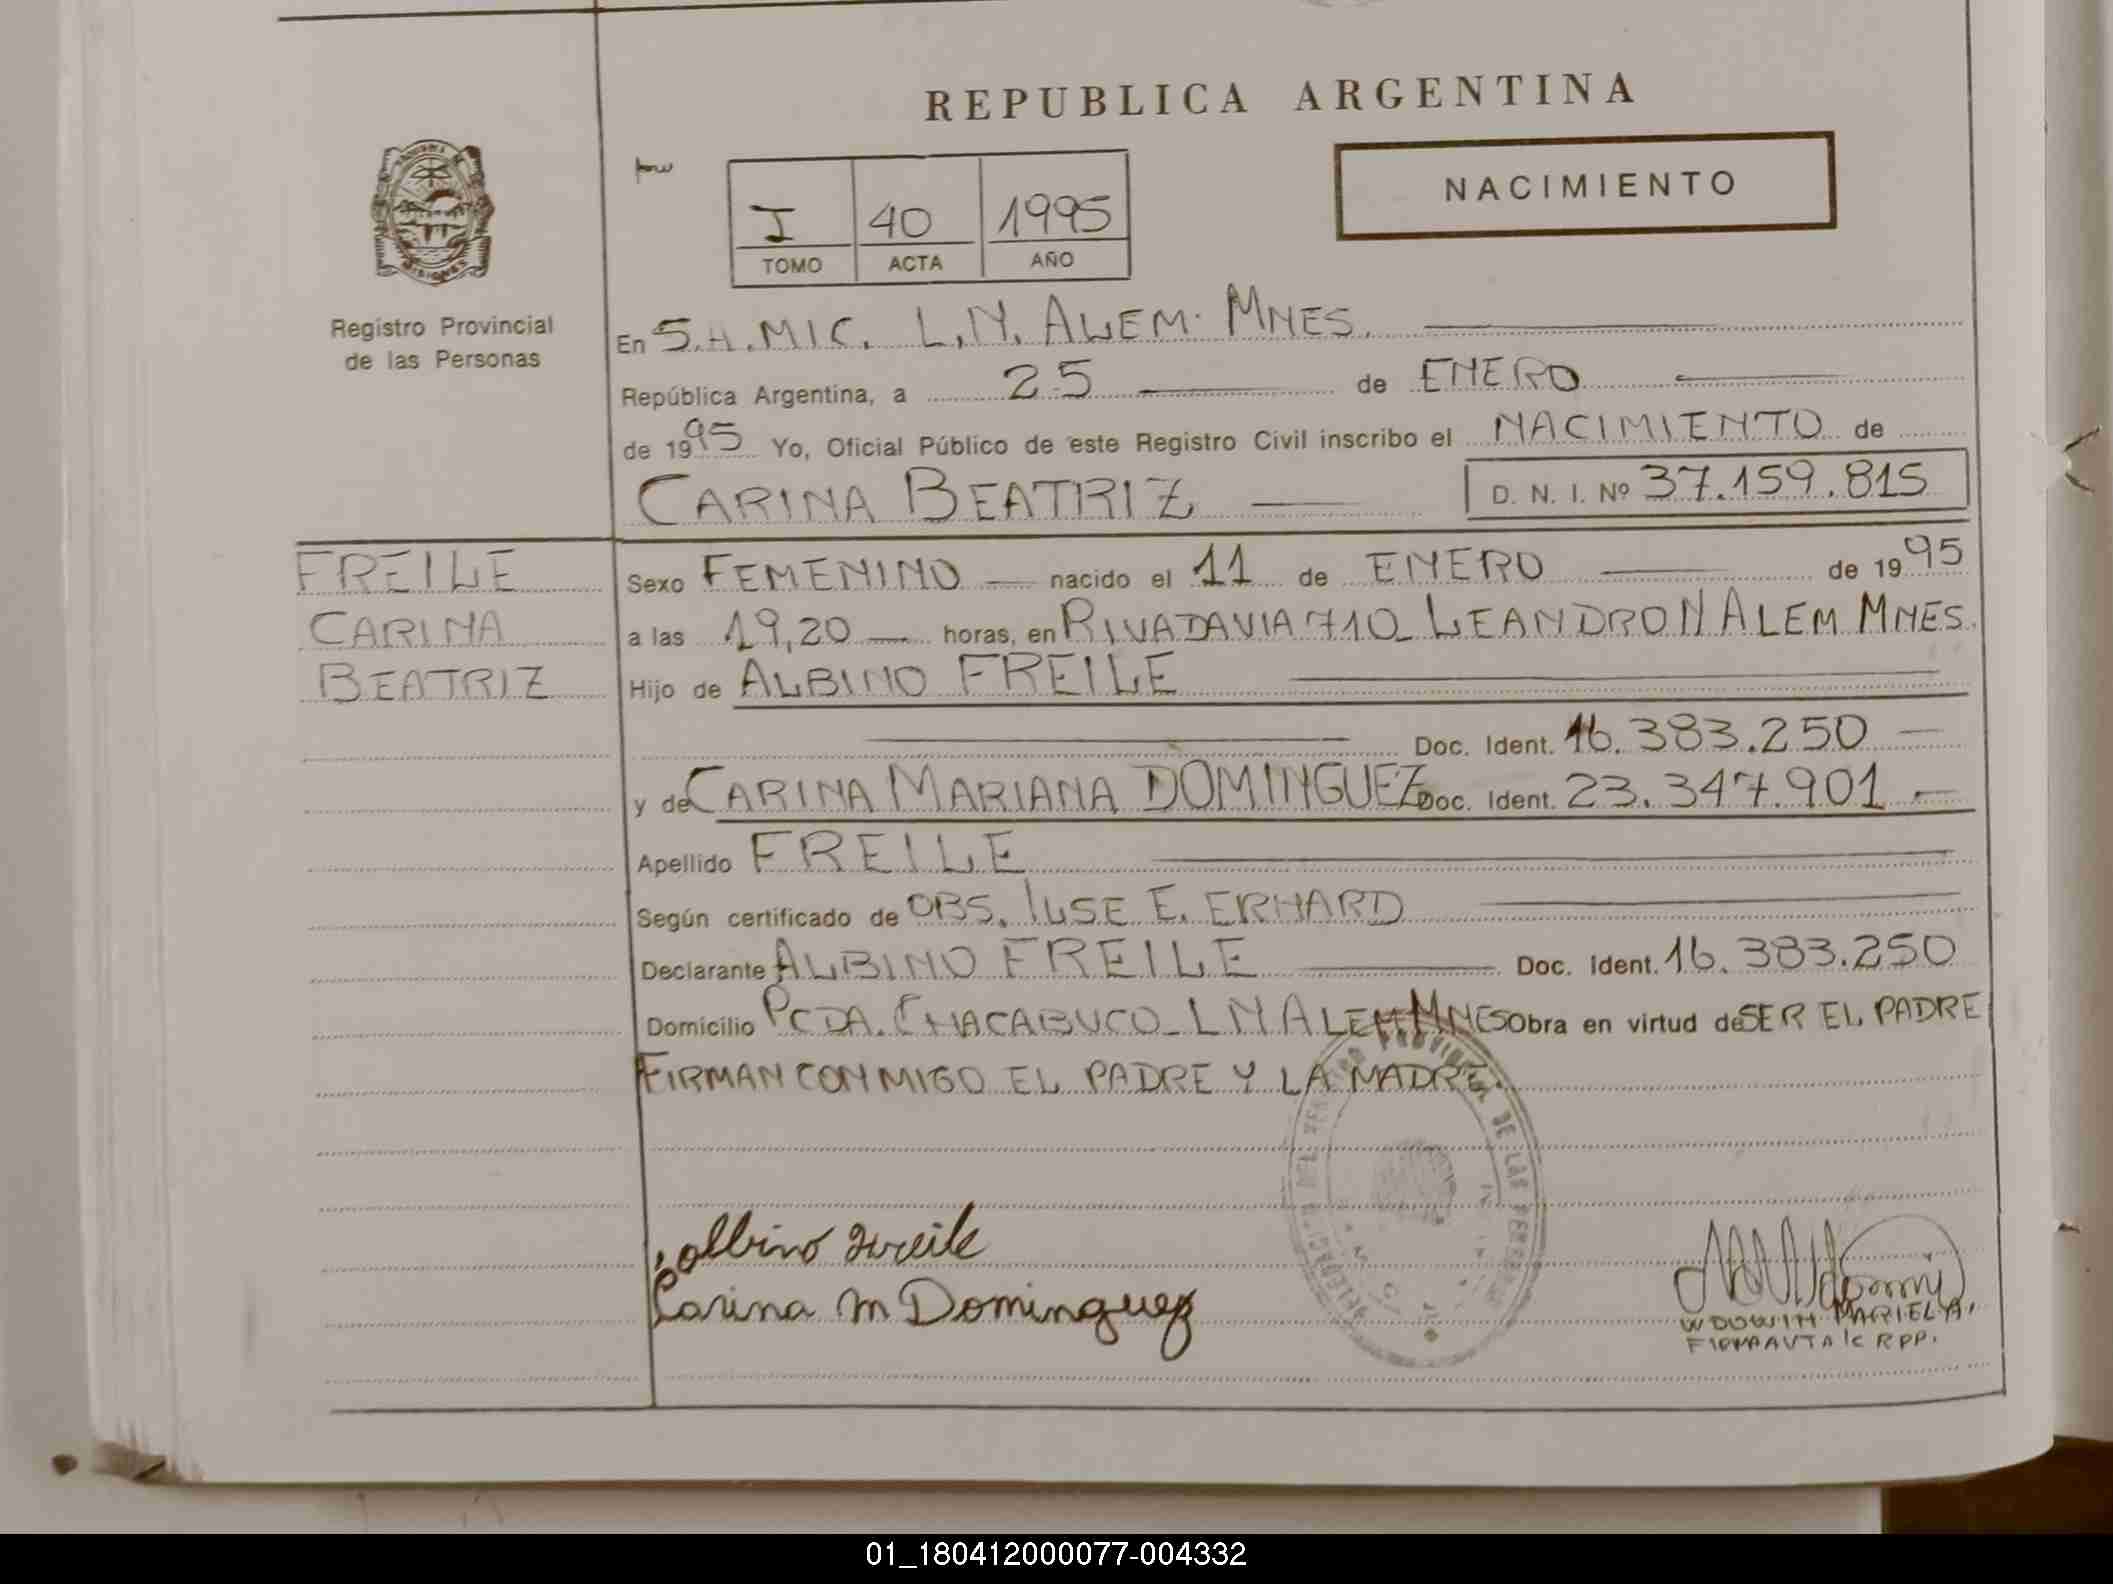 REPUBLICA ARGENTINA
NACIMIENTO
I 40 1995
TOMO ACTA AÑO
Registro Provincial
de las Personas
En S.H.MIC. L.N. ALEM. MNES.
República Argentina, a 25 de ENERO
de 1995 Yo, Oficial Público de este Registro Civil inscribo el NACIMIENTO de
CARINA BEATRIZ D. N. I. Nº 37.159.815
FREILE
CARINA
BEATRIZ
Sexo FEMENINO nacido el 11 de ENERO de 1995
a las 19,20 horas, en RIVADAVIA 710_ LEANDRO N ALEM MNES.
Hijo de ALBINO FREILE
Doc. Ident. 16.383.250
y de CARINA MARIANA DOMINGUEZ Doc. Ident. 23.347.901
Apellido FREILE
Según certificado de OBS. ILSE E. ERHARD
Declarante ALBINO FREILE Doc. Ident. 16.383.250
Domicilio PCDA. CHACABUCO_ L N ALEM MNES Obra en virtud de SER EL PADRE
FIRMAN CONMIGO EL PADRE Y LA MADRE.
PROVINCIAL DE LAS PERSONAS
Albino Freile
Carina M Dominguez
WDOWIN MARIEL A.
FIRMA AUTA
R P P.
01_180412000077-004332